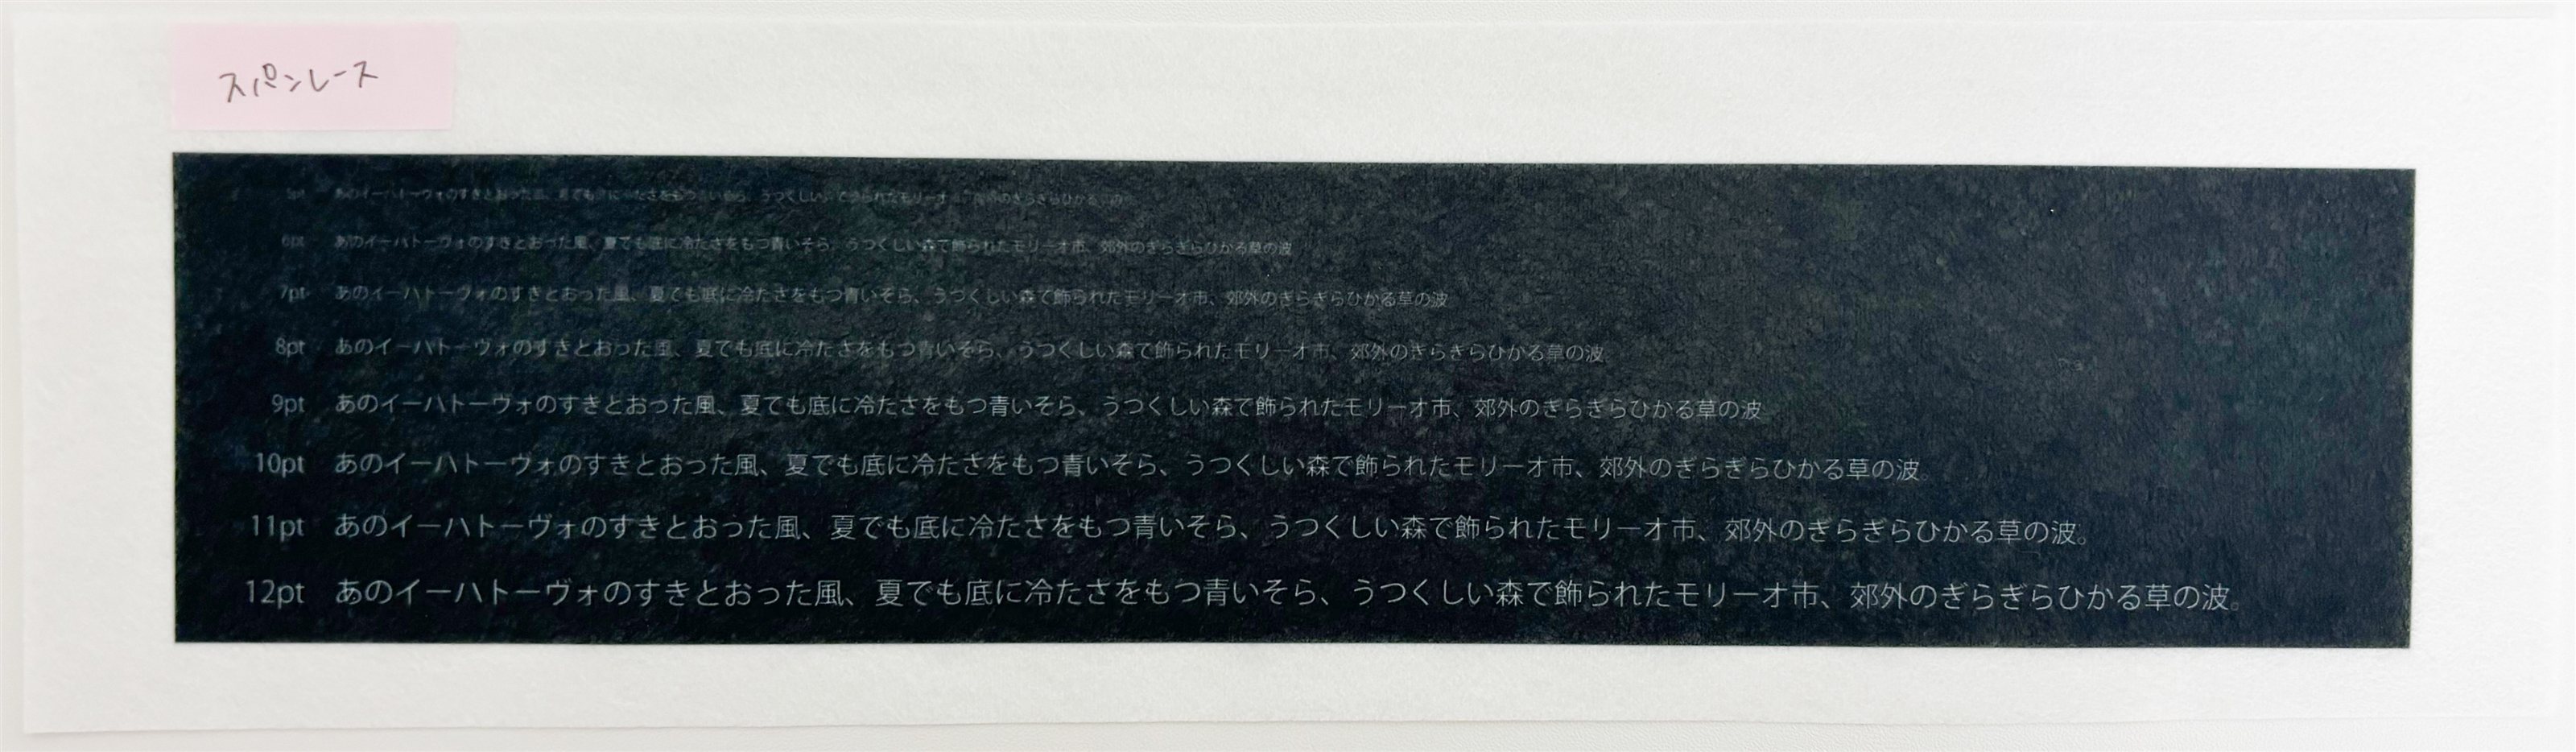 スパンレース
5pt あのイーハトーヴォのすきとおった 夏でも に たさをもつ いそら、うつくしい で られたモリーオ のぎらぎらひかる の
6pt あのイーハトーヴォのすきとおった風、夏でも底に冷たさをもつ青いそら、うつくしい森で飾られたモリーオ市、郊外のぎらぎらひかる草の波
7pt あのイーハトーヴォのすきとおった風、夏でも底に冷たさをもつ青いそら、うつくしい森で飾られたモリーオ市、郊外のぎらぎらひかる草の波
8pt あのイーハトーヴォのすきとおった風、夏でも底に冷たさをもつ青いそら、うつくしい森で飾られたモリーオ市、郊外のぎらぎらひかる草の波
9pt あのイーハトーヴォのすきとおった風、夏でも底に冷たさをもつ青いそら、うつくしい森で飾られたモリーオ市、郊外のぎらぎらひかる草の波
10pt あのイーハトーヴォのすきとおった風、夏でも底に冷たさをもつ青いそら、うつくしい森で飾られたモリーオ市、郊外のぎらぎらひかる草の波。
11pt あのイーハトーヴォのすきとおった風、夏でも底に冷たさをもつ青いそら、うつくしい森で飾られたモリーオ市、郊外のぎらぎらひかる草の波。
12pt あのイーハトーヴォのすきとおった風、夏でも底に冷たさをもつ青いそら、うつくしい森で飾られたモリーオ市、郊外のぎらぎらひかる草の波。